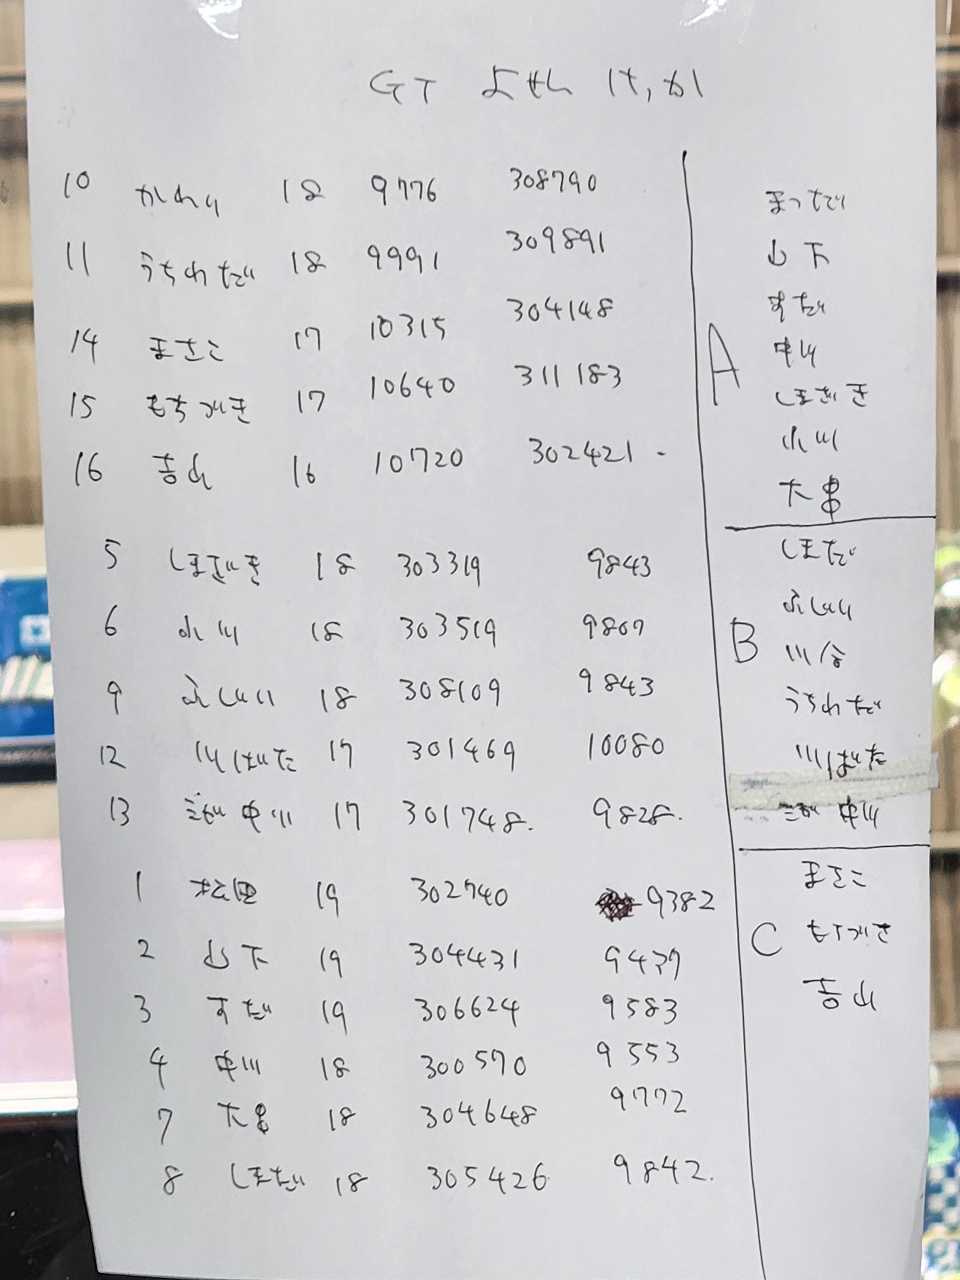 GT よせん けっか
10 かわい 18 9776 308790
11 うちわだ 18 9991 309891
14 まさこ 17 10315 304148
15 もちづき 17 10640 311183
16 吉山 16 10720 302421
5 しまざき 18 303319 9843
6 小川 18 303519 9807
9 ふじい 18 308109 9843
12 川ばた 17 301469 10080
13 中川 17 301748. 9828.
1 松田 19 302740 9382
2 山下 19 304431 9437
3 すだ 19 306624 9583
4 中川 18 300570 9553
7 大串 18 304648 9772
8 しまだ 18 305426 9842.
A
まつだ
山下
すだ
中川
しまざき
小川
大串
B
しまだ
ふじい
川合
うちわだ
川ばた
中川
C
まさこ
もちづき
吉山